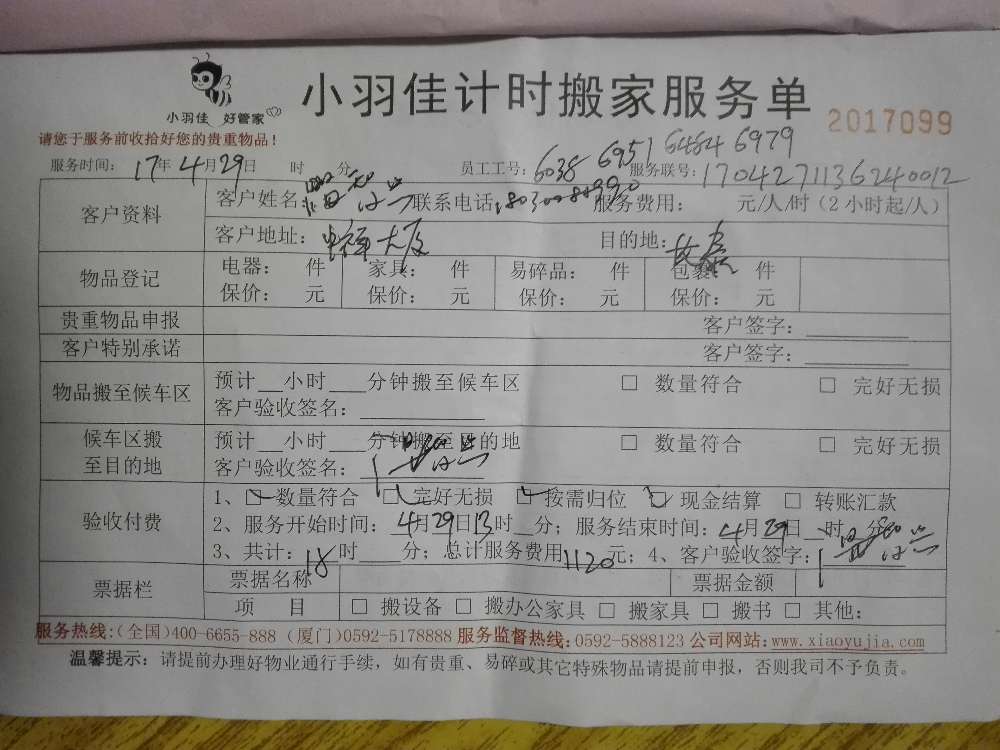 小羽佳 好管家
小羽佳计时搬家服务单
2017099
请您于服务前收拾好您的贵重物品!
服务时间: 17年4月29日 时 分 员工工号: 6038 6951 6484 6979 服务联号: 1704271136240012
客户资料 客户姓名: 联系电话: 服务费用: 元/人/时（2小时起/人）
客户地址: 大厦 目的地:
物品登记 电器: 件 家具: 件 易碎品: 件 包裹: 件
保价: 元 保价: 元 保价: 元 保价: 元
贵重物品申报 客户签字:
客户特别承诺 客户签字:
物品搬至候车区 预计__小时___分钟搬至候车区 □ 数量符合 □ 完好无损
客户验收签名:
候车区搬至目的地 预计__小时___分钟搬至目的地 □ 数量符合 □ 完好无损
客户验收签名:
验收付费 1、☑数量符合 ☑完好无损 ☑按需归位 ☑现金结算 □ 转账汇款
2、服务开始时间: 4月29日13时__分; 服务结束时间: 4月29日__时__分
3、共计: 18时___分; 总计服务费用1120元; 4、客户验收签字:
票据栏 票据名称 票据金额
项 目 □ 搬设备 □ 搬办公家具 □ 搬家具 □ 搬书 □ 其他:
服务热线:(全国)400-6655-888 (厦门)0592-5178888 服务监督热线:0592-5888123 公司网站:www.xiaoyujia.com
温馨提示: 请提前办理好物业通行手续，如有贵重、易碎或其它特殊物品请提前申报，否则我司不予负责。